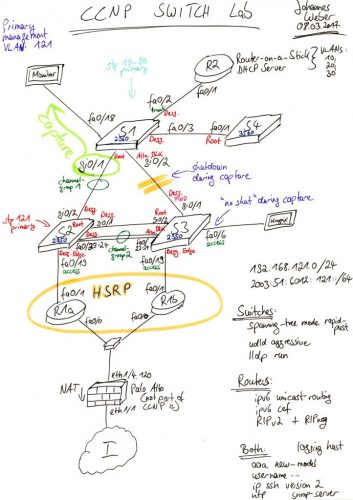 CCNP SWITCH Lab
Johannes
Weber
08.03.2017
Primary
management
VLAN: 121
stp 10-30
primary
R2
Router-on-a-Stick
DHCP Server
VLANs:
10,
20,
30
Monitor
fa0/18
fa0/2
trunk
fa0/1
S1
2960
Desg.
fa0/3
Root
fa0/1
S4
2960
capture
Gi0/1
Root
Altn. BLK
Gi0/2
channel-
group 1
shutdown
during capture
"no shut" during capture
stp 121
primary
Gi0/2
Desg.
Desg.
Gi0/1
Root
Gi0/2
S2
2960
S3
Desg.
fa0/23-24
channel-
group 2
fa0/6
access
Desg. Edge
fa0/19
access
fa0/19
access
Desg. Edge
fa0/1
HSRP
fa0/1
R1a
R1b
fa0/0
fa0/0
192.168.121.0/24
2003:51:6012:121::/64
Switches:
spanning-tree mode rapid-pvst
udld aggressive
lldp run
eth1/4.120
NAT
Palo Alto
(not part of
CCNP ;))
eth1/1
I
Routers:
ipv6 unicast routing
ipv6 cef
RIPv2 + RIPng
Both:
logging host
aaa new-model
username ...
ip ssh version 2
ntp
snmp-server